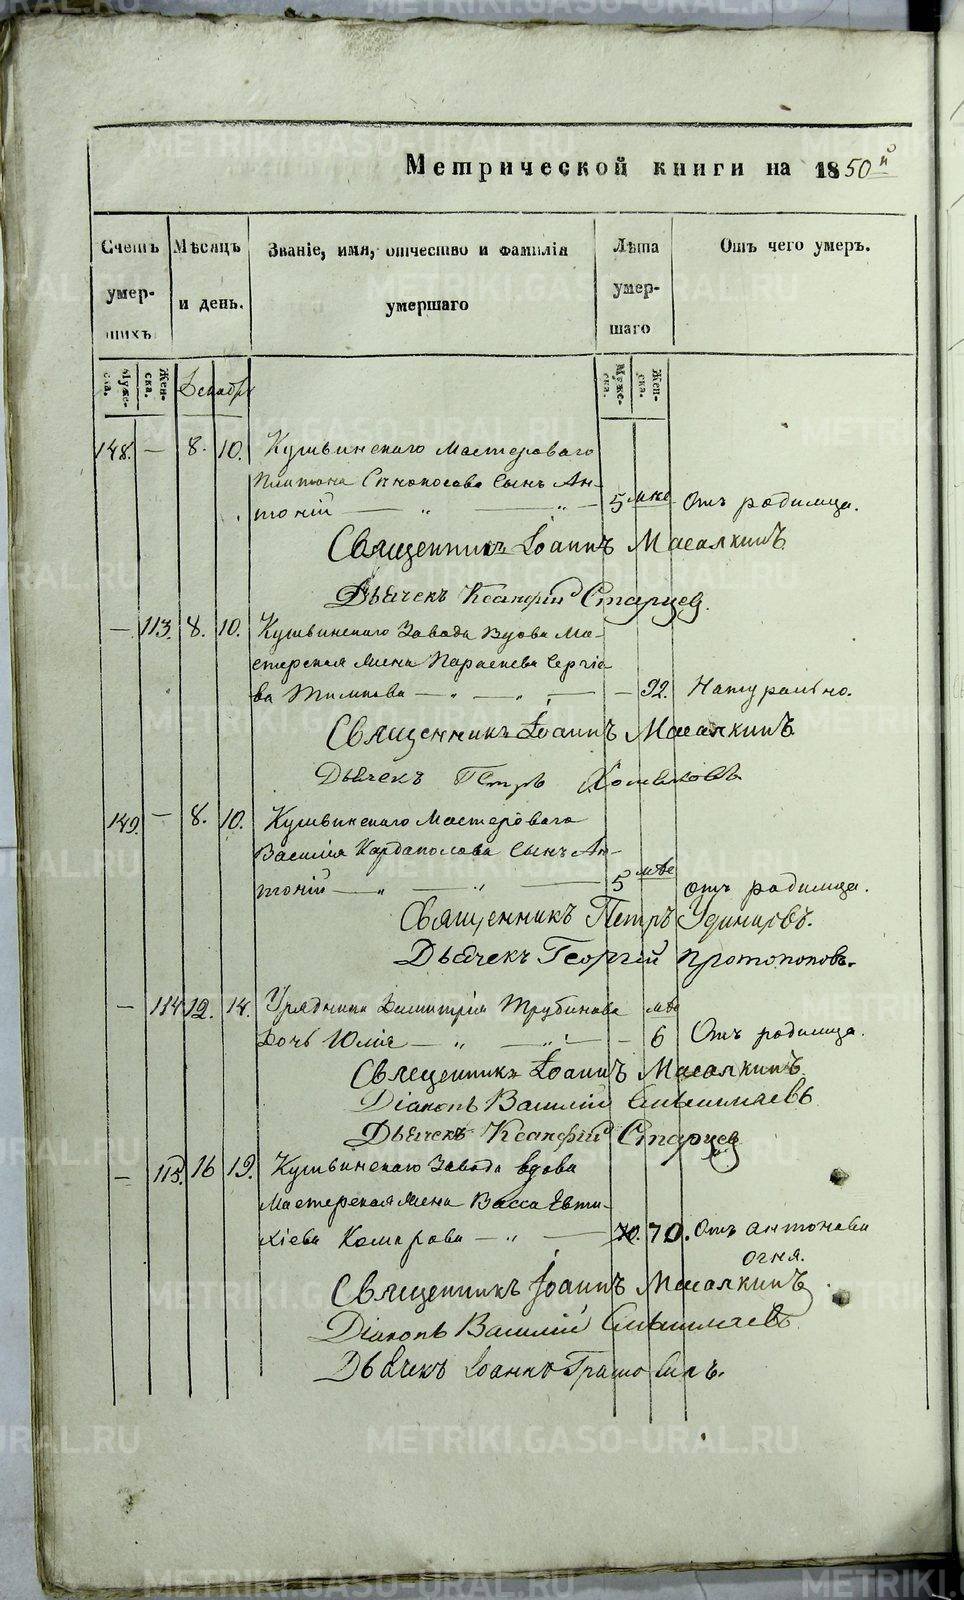 Метрической книги на 1850й
Счетъ умер-шихъ.
Мѣсяцъ и день.
Званіе, имя, отчество и фамилія умершаго
Лѣта умер-шаго
Отъ чего умеръ.
Муже-ска.
Жен-ска.
Декабрь
Муже-ска.
Жен-ска.
148. — 8. 10. Кушвинскаго Мастероваго
Платона сынъ Ан-
тоній — " — " — 5 мце Отъ родимца.
Священникъ Іоаннъ Масалкинъ
Дьячекъ Ксанфій Старцев
— 113. 8. 10. Кушвинскаго Завода Вдова Ма-
стерская жена Параскева Сергіе-
ва — " — " — — 92. Натурально.
Священникъ Іоаннъ Масалкинъ
Дьячекъ Петръ Хомяковъ
149. — 8. 10. Кушвинскаго Мастероваго
Василія Кардаполова сынъ Ан-
тоній — " — " — 5 мце отъ родимца.
Священникъ Петръ Удинцевъ.
Дьячекъ Георгій Протопоповъ.
— 114 12. 14. Урядника Димитрія Трубинова мце
дочь Юлія — " — " — — 6 Отъ родимца.
Священникъ Іоаннъ Масалкинъ.
Діаконъ Василій
Дьячекъ Ксанфій Старцев
— 115. 16 19. Кушвинскаго Завода вдова
Мастерская жена Васса Евти-
хіева Комарова — " — 70. 70. Отъ антонова
огня.
Священникъ Іоаннъ Масалкинъ
Діаконъ Василій
Дьячекъ Іоаннъ
METRIKI.GASO-URAL.RU